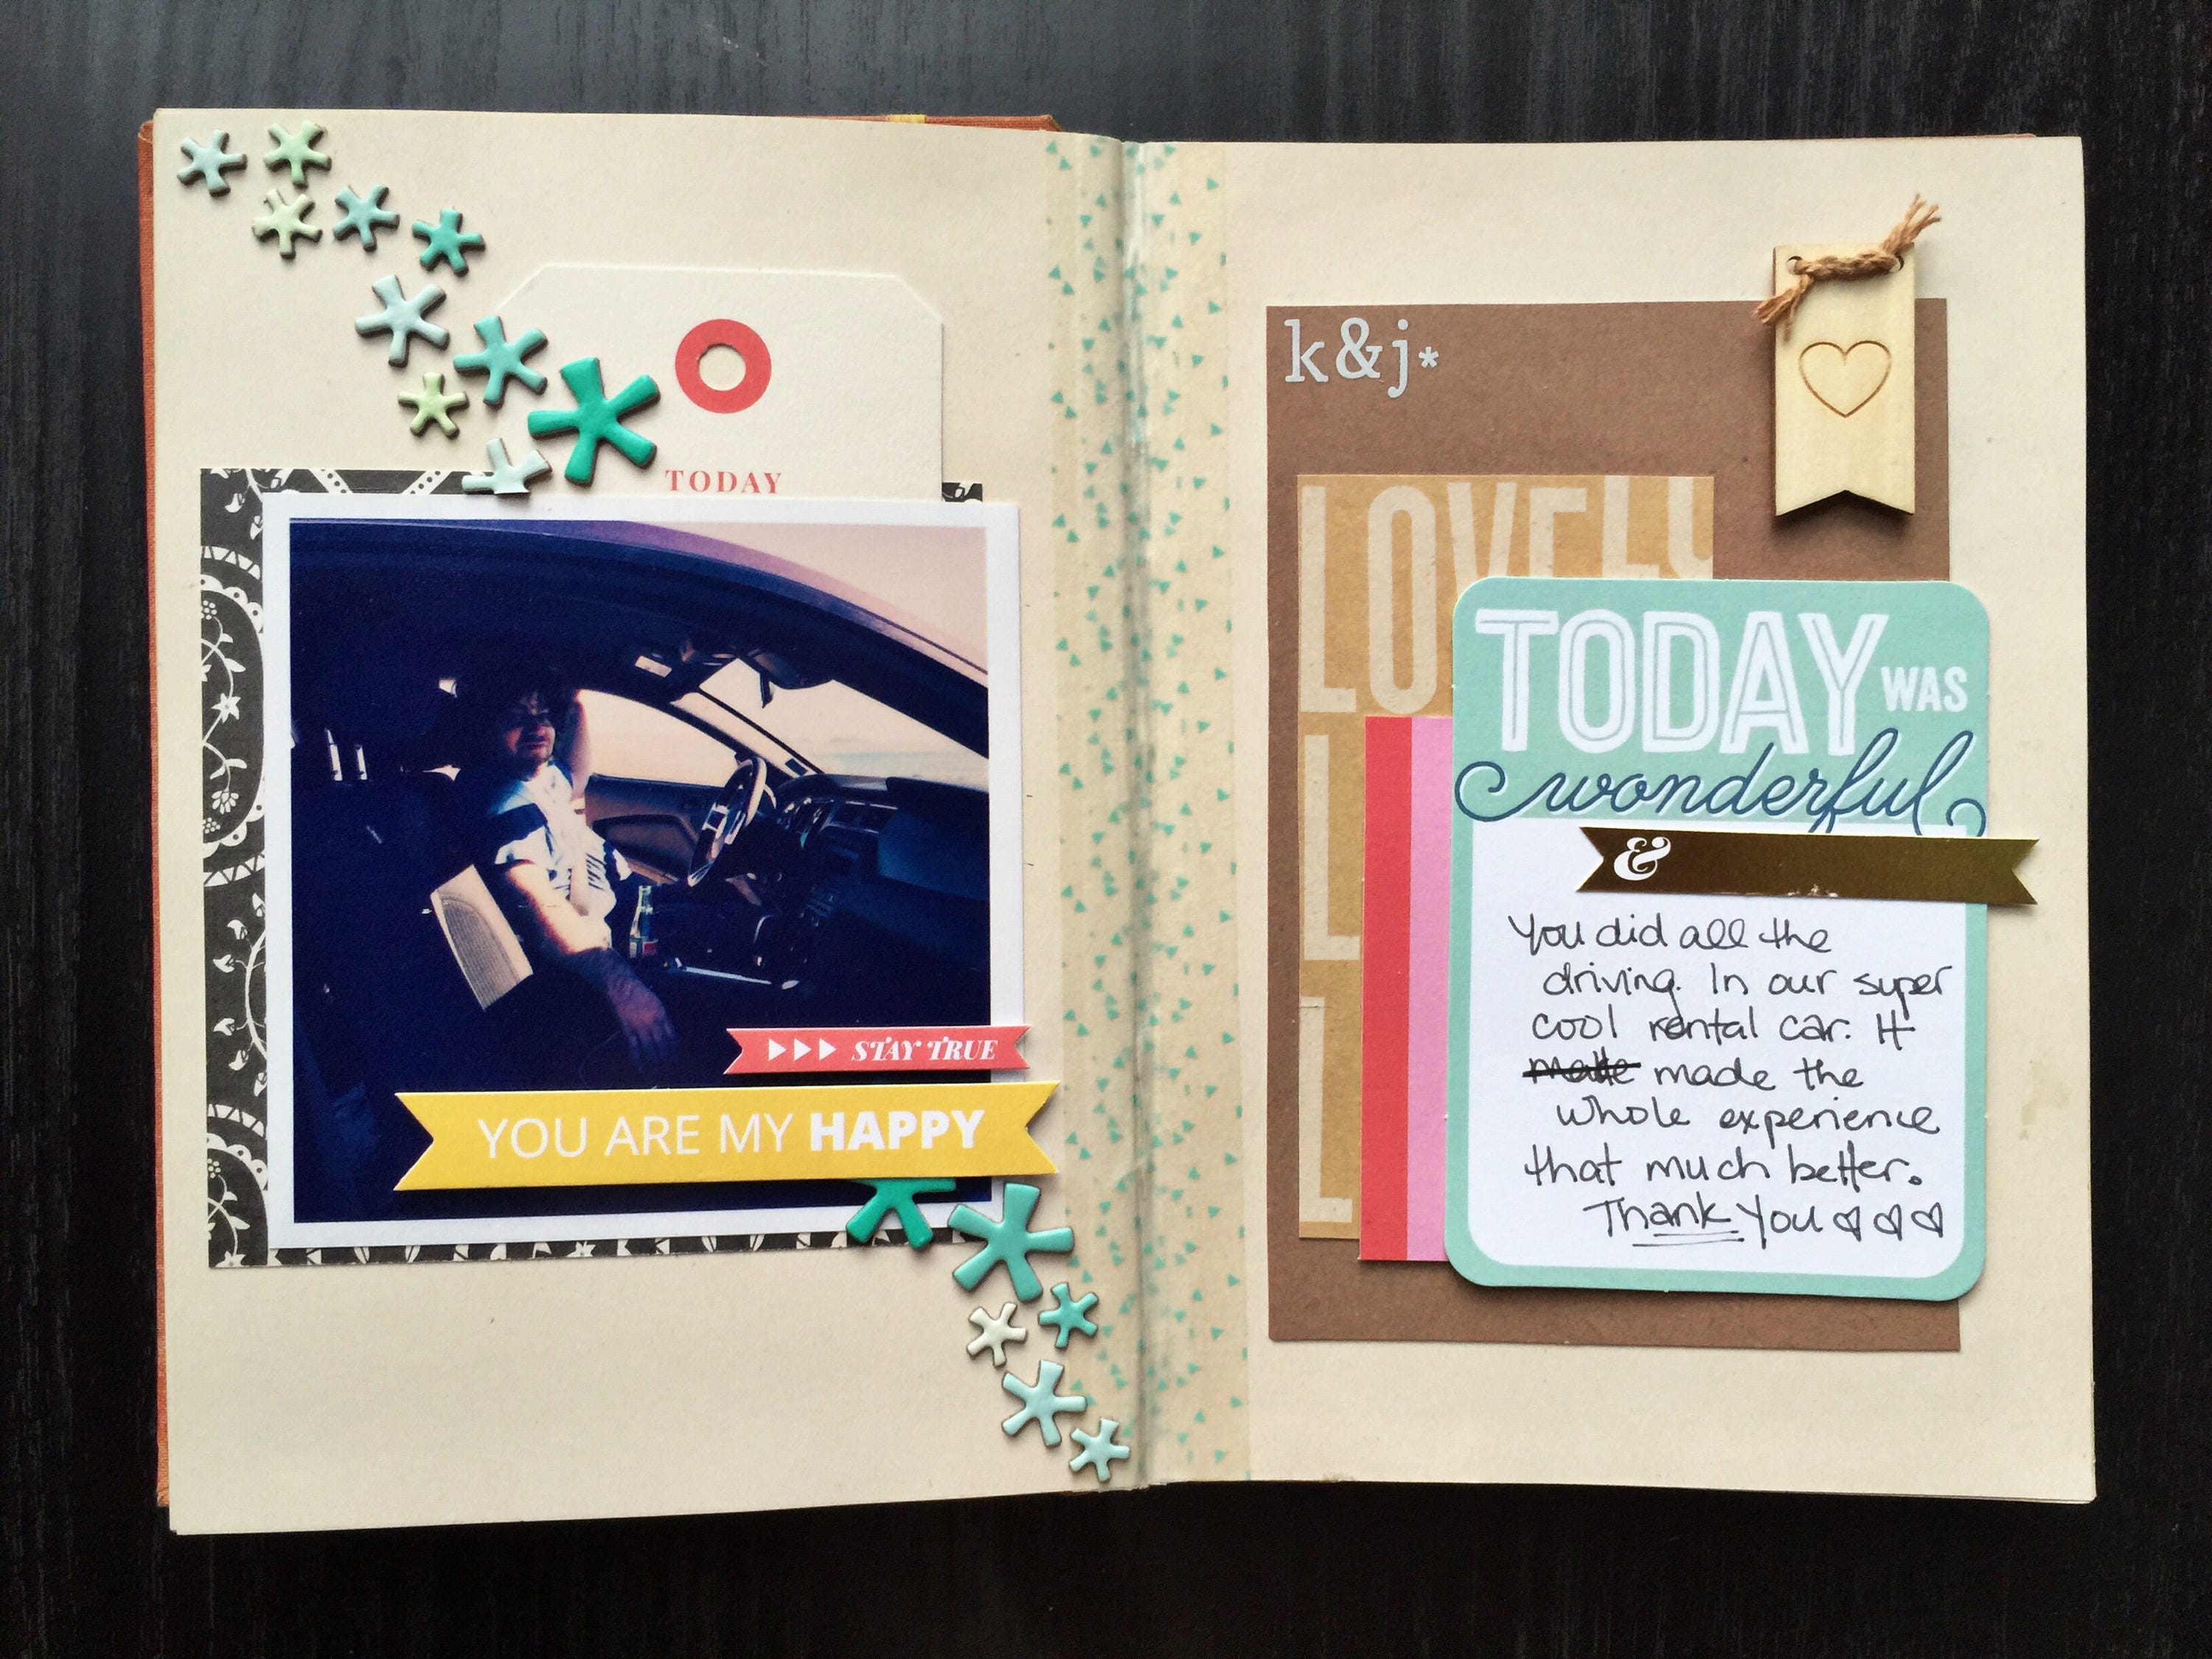 TODAY
STAY TRUE
YOU ARE MY HAPPY
k&j*
LOVELY
L
L
TODAY WAS
wonderful
&
You did all the
driving. In our super
cool rental car. It
made the
whole experience
that much better.
Thank You ♡♡♡